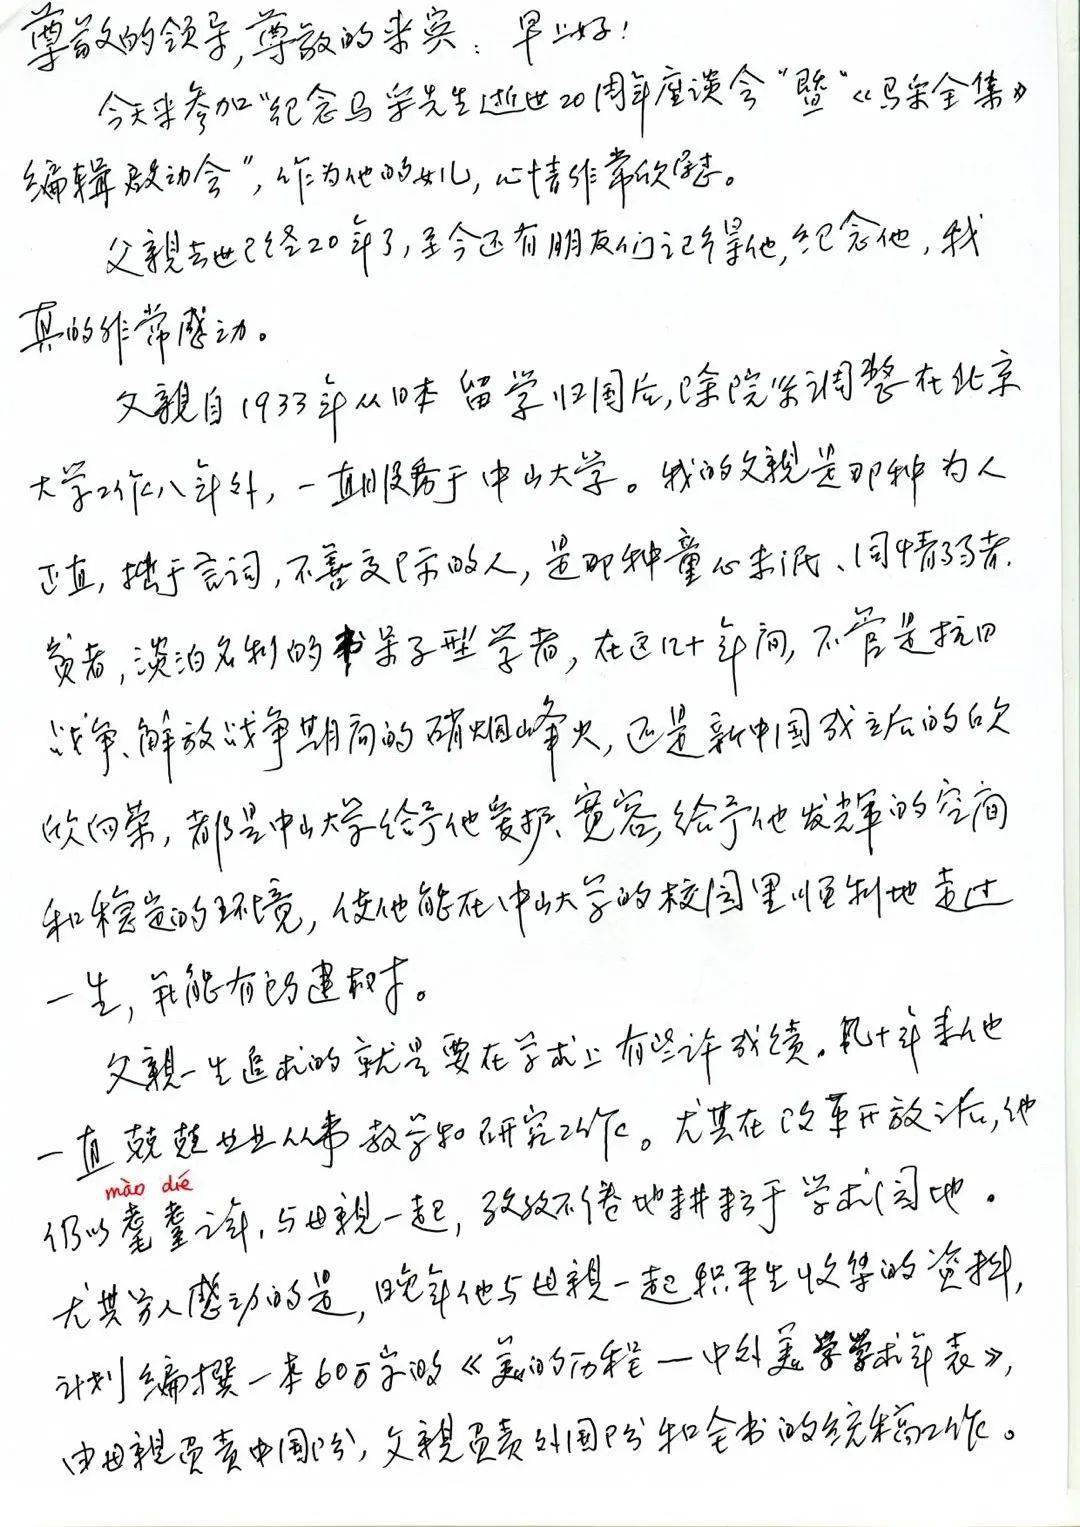 尊敬的领导,尊敬的来宾：早上好！
今天来参加“纪念马采先生逝世20周年座谈会”暨“《马采全集》
编辑启动会”，作为他的女儿，心情非常欣慰。
父親去世已经20年了，至今还有朋友们记得他，纪念他，我
真的非常感动。
父親自1933年从日本留学归国后，除院系调整在北京
大学工作八年外，一直服务于中山大学。我的父親是那种为人
正直，拙于言词，不善交际的人，是那种童心未泯、同情弱者、
贫者，淡泊名利的书呆子型学者，在这几十年间，不管是抗日
战争、解放战争期间的硝烟峰火，还是新中国成立后的欣
欣向荣，都是中山大学给予他爱护、宽容，给予他发挥的空间
和稳定的环境，使他能在中山大学的校园里顺利地走过
一生，并能有所建树。
父親一生追求的就是要在学术上有些许成绩。几十年来他
一直兢兢业业从事教学和研究工作。尤其在改革开放之后，他
mào dié
仍以耄耋之年，与母親一起，孜孜不倦地耕耘于学术园地。
尤其令人感动的是，晚年他与母親一起积平生收集的资料，
计划编撰一本60万字的《美的历程一中外美学学术年表》，
由母親负责中国部分，父親负责外国部分和全书的统稿工作。